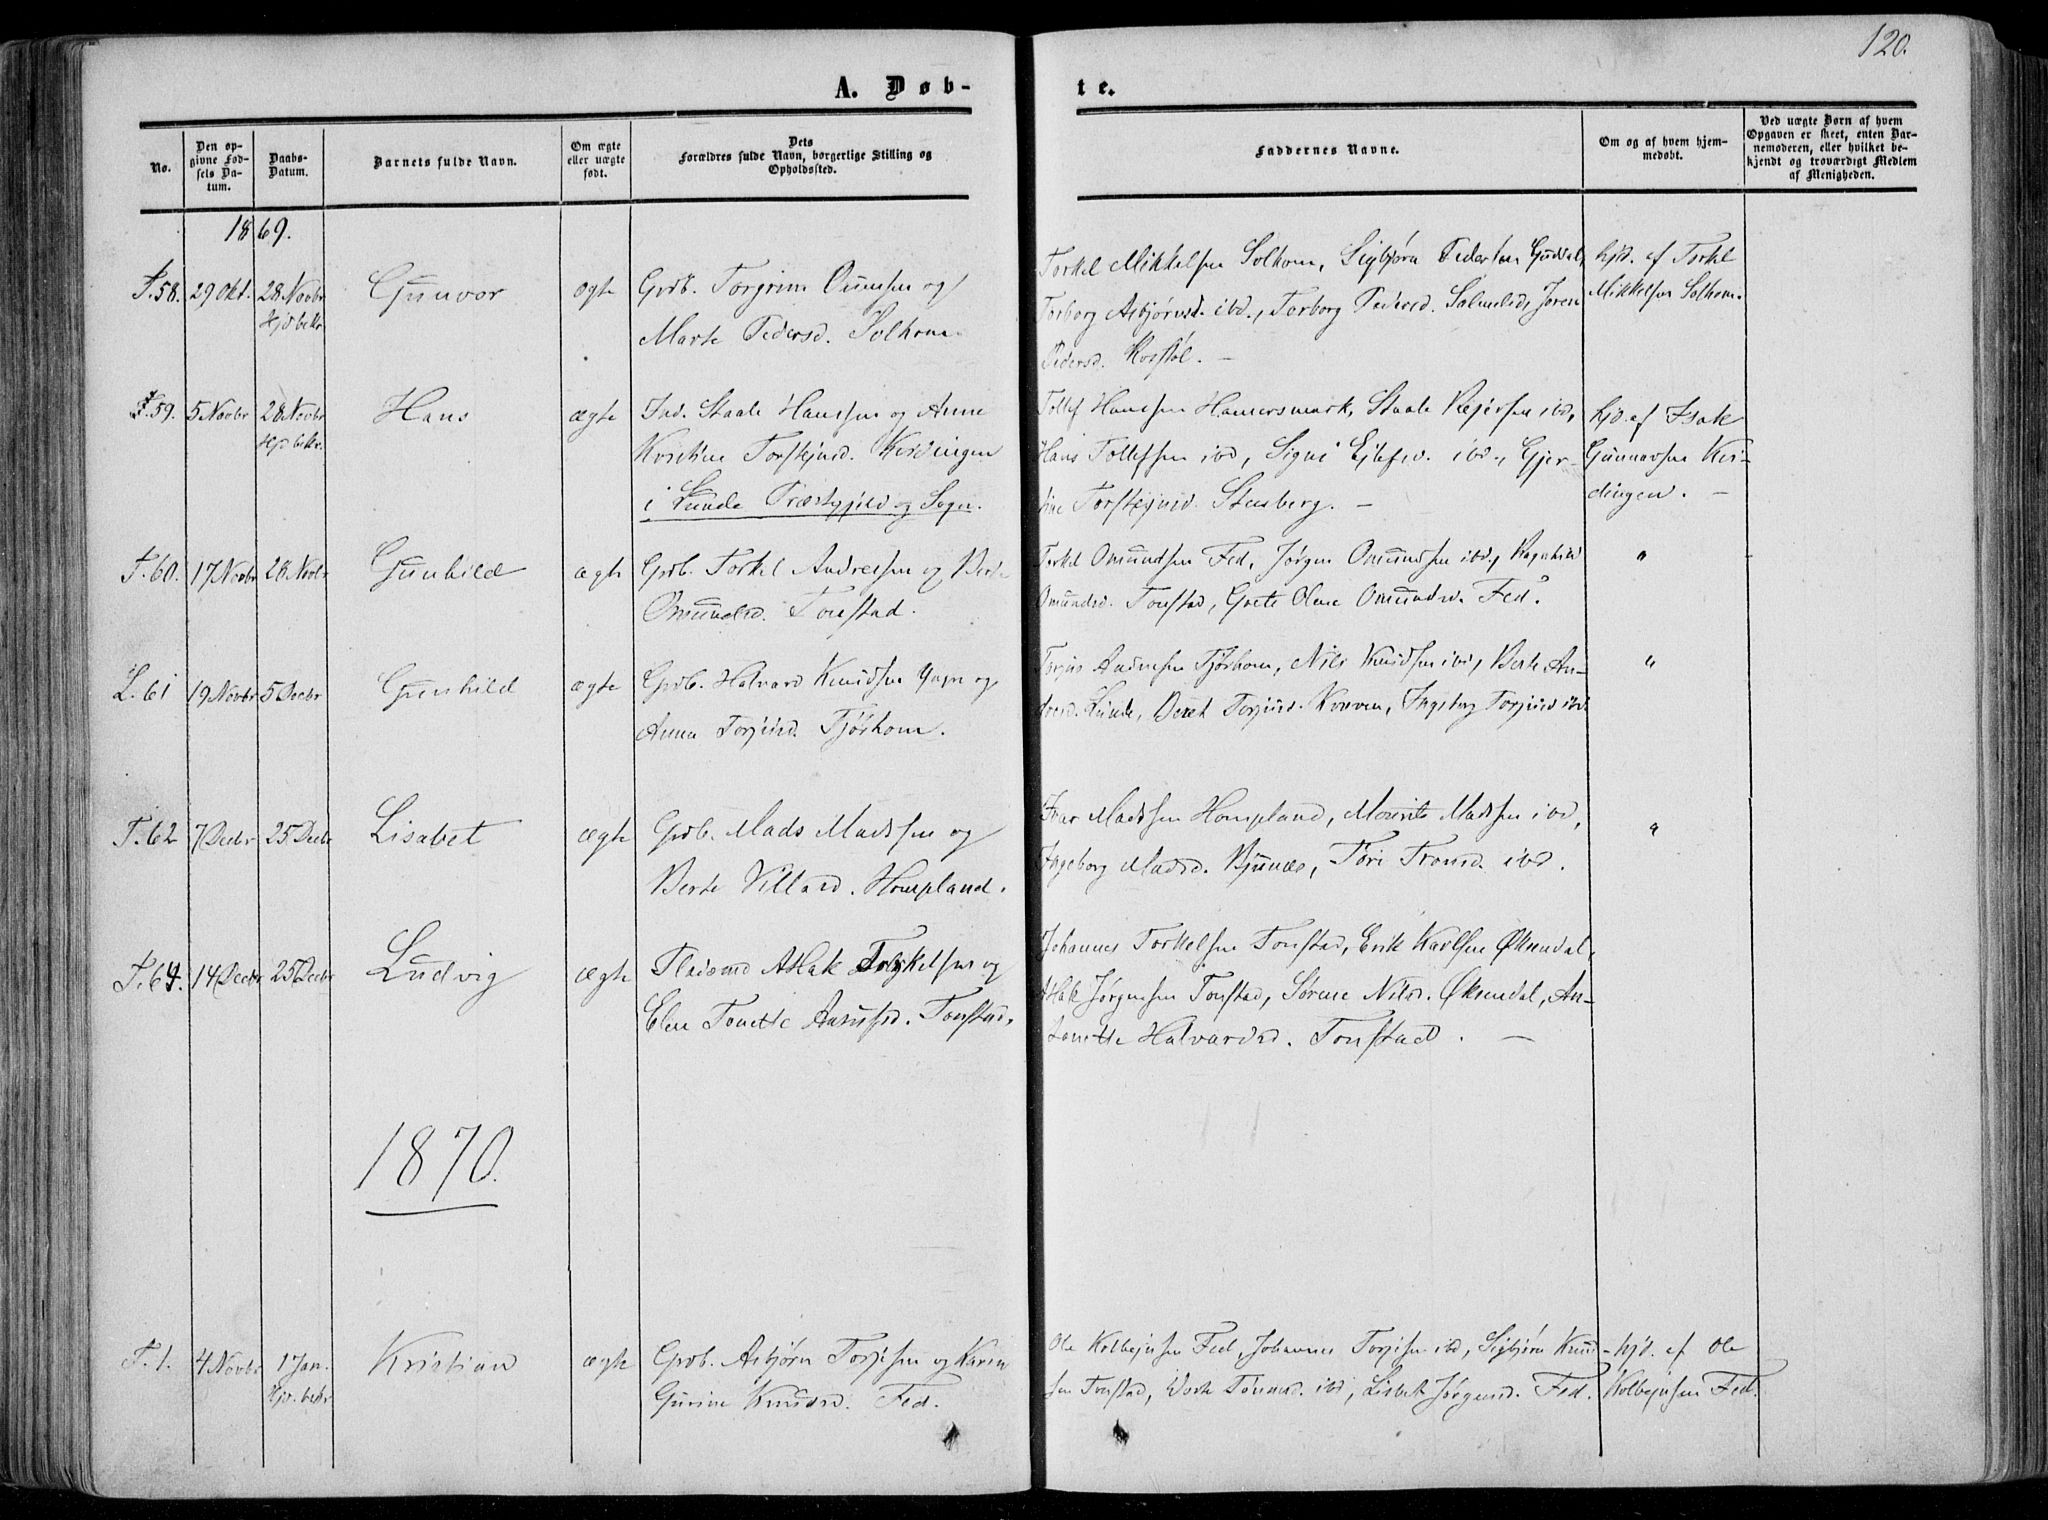 120.
A. Døb-
te.
No.
Den op-
givne Fød-
sels Da-
tum.
Daabs-
Datum.
Barnets fulde Navn.
Om ægte
eller uægte
født.
Dets
Forældres fulde Navn, borgerlige Stilling og
Opholdssted.
Faddernes Navne.
Om og af hvem hjem-
medøbt.
Ved uægte Børn af hvem
Opgaven er skeet, enten Bar-
nemoderen, eller hvilket be-
kjendt og troværdigt Medlem
af Menigheden.
1869.
T.58. 29 Okt. 28 Novbr Gunvor ægte Grdb. Torgrim Omundsen og
Hjd bekr.
Marte Pedersd. Solhom.
Torkel Mikkelsen Solhom, Sigbjørn Pedersen Guddal,
Torborg Asbjørnsd. ibd., Torborg Pedersd. Salmelid, Joren
Pedersd. Josstøl. —
hjd. af Torkel
Mikkelsen Solhom.
T.59. 5 Novbr 28 Novbr Hans ægte Ind. Staale Hanssen og Anne
Hjd bekr.
Kristine Torstejnsd. Kvidingen
i Lunde Præstegjeld og Sogn.
Tollef Hanssen Hamersmark, Staale Rejersen ibd,
Hans Tollefsen ibd, Signi Ejlefsd. ibd., Gjer-
tine Torstejnsd. Stensberg. —
hjd. af Isak
Gunnarsen Kvi-
dingen. —
T.60. 17 Novbr 28 Novbr Gunhild ægte Grdb. Torkel Andreassen og Berte
Omundsd. Tonstad.
Torkel Omundsen Fed, Jørgen Omundsen ibd, Ragnhild
Omundsd. Tonstad, Grete Oline Omundsd. Fed.
"
L.61 19 Novbr 5 Decbr Gunhild ægte Grdb. Halvard Knudsen Yngre og
Anna Torjusd. Tjørhom.
Torjus Andersen Tjørhom, Nils Knudsen ibd, Berte An-
dersd. Lunde, Beret Torjusd. Kvæven, Ingeborg Torjusd ibd.
"
T.62 7 Decbr 25 Decbr Lisabet ægte Grdb. Mads Madssen og
Berte Villasd. Hompland.
Ivar Madssen Hompland, Mourits Madssen ibd,
Ingeborg Madsd. Bjunes, Tori Tronsd. ibd.
"
T.64. 14 Decbr 25 Decbr Ludvig ægte Pladsmd Aslak Torkelsen og
Elen Tonette Aanensd. Tonstad.
Johannes Torkelsen Tonstad, Erik Karlsen Øksendal,
Aslak Jørgensen Tonstad, Sørene Nilsd. Øksendal, An-
tonette Halvardsd. Tonstad. —
1870.
T.1. 4 Novbr 1 Jan. Kristian ægte Grdb. Asbjørn Torjesen og Karen
Hjd. bekr.
Gurine Knudsd. Fed.
Ole Kolbejnsen Fed, Johannes Torjesen ibd, Sigbjørn Knud-
sen Tonstad, Berte Tønnesd. ibd, Lisbet Jørgensd. Fed.
hjd. af Ole
Kolbejnsen Fed.